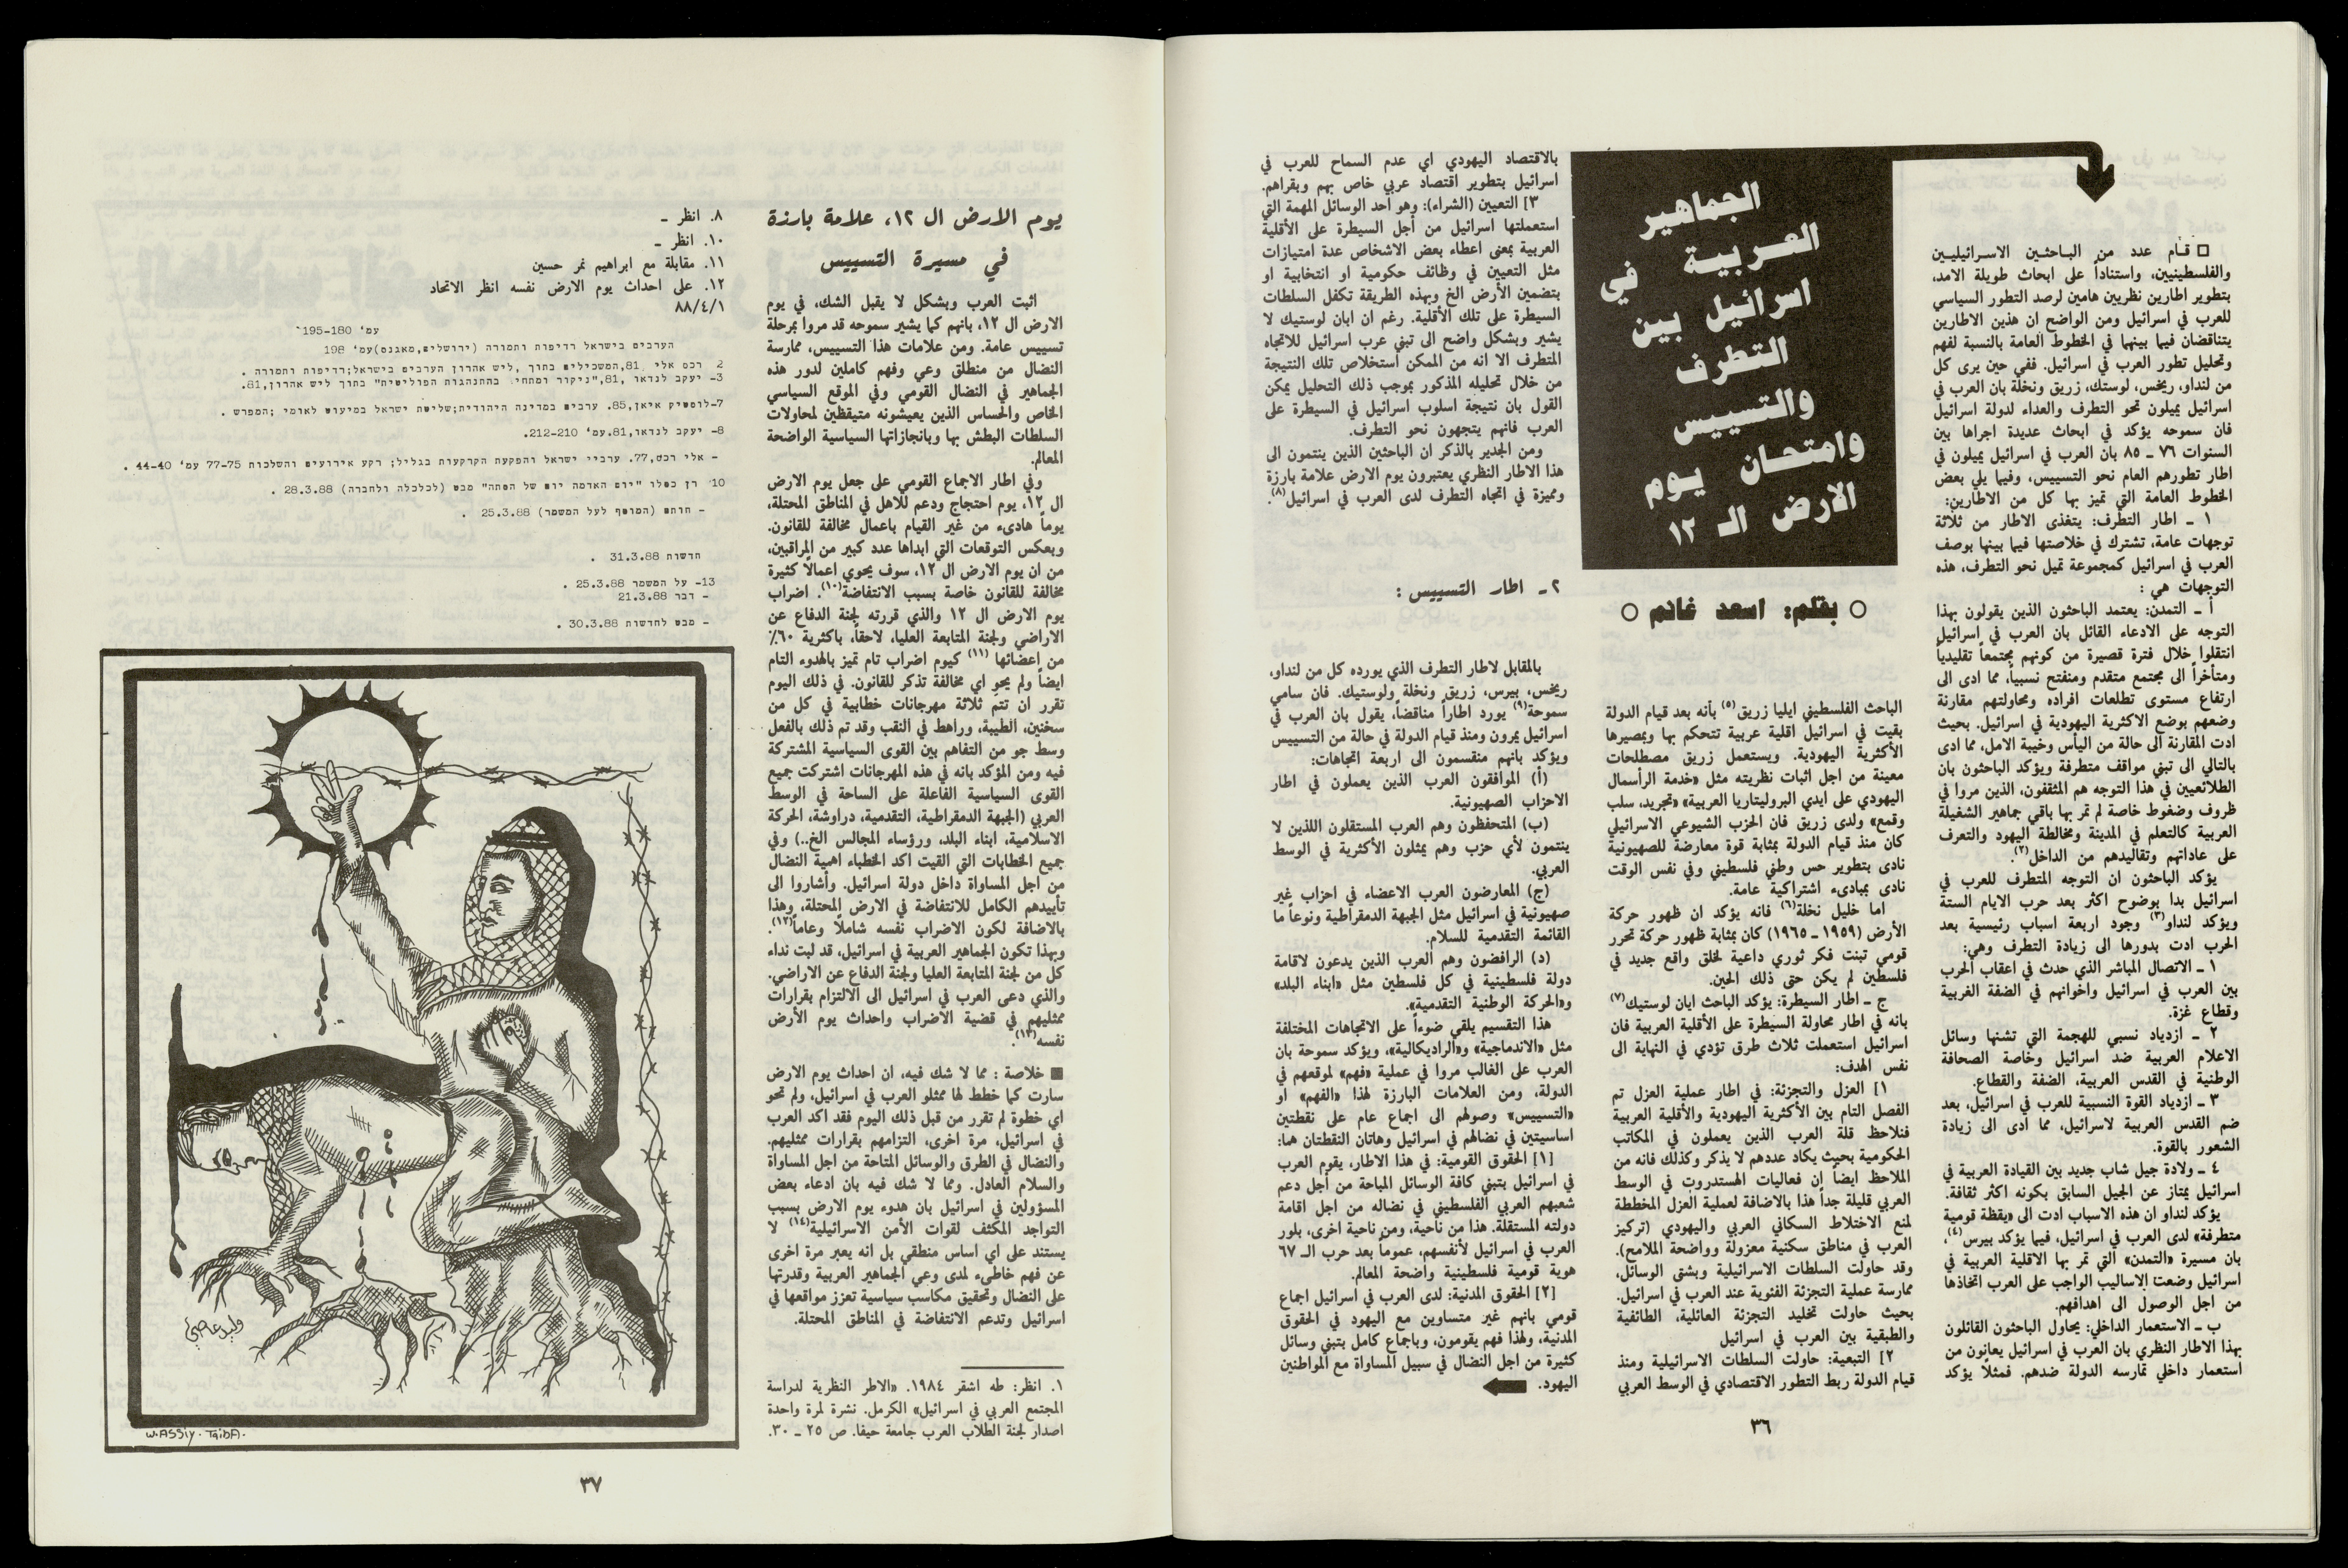 الجماهير
العربية في
اسرائيل بين
التطرف
والتسييس
وامتحان يوم
الارض الـ ١٢
○ بقلم: اسعد غانم ○
□ قام عدد من الباحثين الاسرائيليين
والفلسطينيين، واستناداً على ابحاث طويلة الامد،
بتطوير اطارين نظريين هامين لرصد التطور السياسي
للعرب في اسرائيل ومن الواضح ان هذين الاطارين
يتناقضان فيما بينهما في الخطوط العامة بالنسبة لفهم
وتحليل تطور العرب في اسرائيل. ففي حين يرى كل
من لنداو، ريخس، لوستك، زريق ونخلة بان العرب في
اسرائيل يميلون نحو التطرف والعداء لدولة اسرائيل
فان سموحه يؤكد في ابحاث عديدة اجراها بين
السنوات ٧٦ ـ ٨٥ بان العرب في اسرائيل يميلون في
اطار تطورهم العام نحو التسييس، وفيما يلي بعض
الخطوط العامة التي تميز بها كل من الاطارين:
١ ـ اطار التطرف: يتغذى الاطار من ثلاثة
توجهات عامة، تشترك في خلاصتها فيما بينها بوصف
العرب في اسرائيل كمجموعة تميل نحو التطرف، هذه
التوجهات هي :
أ ـ التمدن: يعتمد الباحثون الذين يقولون بهذا
التوجه على الادعاء القائل بان العرب في اسرائيل
انتقلوا خلال فترة قصيرة من كونهم مجتمعاً تقليدياً
ومتأخراً الى مجتمع متقدم ومنفتح نسبياً، مما ادى الى
ارتفاع مستوى تطلعات افراده ومحاولتهم مقارنة
وضعهم بوضع الاكثرية اليهودية في اسرائيل. بحيث
ادت المقارنة الى حالة من اليأس وخيبة الامل، مما ادى
بالتالي الى تبني مواقف متطرفة ويؤكد الباحثون بان
الطلائعيين في هذا التوجه هم المثقفون، الذين مروا في
ظروف وضغوط خاصة لم تمر بها باقي جماهير الشغيلة
العربية كالتعلم في المدينة ومخالطة اليهود والتعرف
على عاداتهم وتقاليدهم من الداخل(٢).
يؤكد الباحثون ان التوجه المتطرف للعرب في
اسرائيل بدا بوضوح اكثر بعد حرب الايام الستة
ويؤكد لنداو(٣) وجود اربعة اسباب رئيسية بعد
الحرب ادت بدورها الى زيادة التطرف وهي:
١ ـ الاتصال المباشر الذي حدث في اعقاب الحرب
بين العرب في اسرائيل واخوانهم في الضفة الغربية
وقطاع غزة.
٢ ـ ازدياد نسبي للهجمة التي تشنها وسائل
الاعلام العربية ضد اسرائيل وخاصة الصحافة
الوطنية في القدس العربية، الضفة والقطاع.
٣ ـ ازدياد القوة النسبية للعرب في اسرائيل، بعد
ضم القدس العربية لاسرائيل، مما ادى الى زيادة
الشعور بالقوة.
٤ ـ ولادة جيل شاب جديد بين القيادة العربية في
اسرائيل يمتاز عن الجيل السابق بكونه اكثر ثقافة.
يؤكد لنداو ان هذه الاسباب ادت الى «يقظة قومية
متطرفة» لدى العرب في اسرائيل، فيما يؤكد بيرس(٤)،
بان مسيرة «التمدن» التي تمر بها الاقلية العربية في
اسرائيل وضعت الاساليب الواجب على العرب اتخاذها
من اجل الوصول الى اهدافهم.
ب ـ الاستعمار الداخلي: يحاول الباحثون القائلون
بهذا الاطار النظري بان العرب في اسرائيل يعانون من
استعمار داخلي تمارسه الدولة ضدهم. فمثلاً يؤكد
الباحث الفلسطيني ايليا زريق(٥) بأنه بعد قيام الدولة
بقيت في اسرائيل اقلية عربية تتحكم بها وبمصيرها
الأكثرية اليهودية. ويستعمل زريق مصطلحات
معينة من اجل اثبات نظريته مثل «خدمة الرأسمال
اليهودي على ايدي البروليتاريا العربية» «تجريد، سلب
وقمع» ولدى زريق فان الحزب الشيوعي الاسرائيلي
كان منذ قيام الدولة بمثابة قوة معارضة للصهيونية
نادى بتطوير حس وطني فلسطيني وفي نفس الوقت
نادى بمبادىء اشتراكية عامة.
اما خليل نخلة(٦) فانه يؤكد ان ظهور حركة
الأرض (١٩٥٩ ـ ١٩٦٥) كان بمثابة ظهور حركة تحرر
قومي تبنت فكر ثوري داعية لخلق واقع جديد في
فلسطين لم يكن حتى ذلك الحين.
ج ـ اطار السيطرة: يؤكد الباحث ايان لوستيك(٧)
بانه في اطار محاولة السيطرة على الأقلية العربية فان
اسرائيل استعملت ثلاث طرق تؤدي في النهاية الى
نفس الهدف:
١] العزل والتجزئة: في اطار عملية العزل تم
الفصل التام بين الأكثرية اليهودية والأقلية العربية
فنلاحظ قلة العرب الذين يعملون في المكاتب
الحكومية بحيث يكاد عددهم لا يذكر وكذلك فانه من
الملاحظ ايضاً ان فعاليات الهستدروت في الوسط
العربي قليلة جداً هذا بالاضافة لعملية العزل المخططة
لمنع الاختلاط السكاني العربي واليهودي (تركيز
العرب في مناطق سكنية معزولة وواضحة الملامح).
وقد حاولت السلطات الاسرائيلية وبشتى الوسائل،
ممارسة عملية التجزئة الفئوية عند العرب في اسرائيل.
بحيث حاولت تخليد التجزئة العائلية، الطائفية
والطبقية بين العرب في اسرائيل
٢] التبعية: حاولت السلطات الاسرائيلية ومنذ
قيام الدولة ربط التطور الاقتصادي في الوسط العربي
بالاقتصاد اليهودي اي عدم السماح للعرب في
اسرائيل بتطوير اقتصاد عربي خاص بهم وبقراهم.
٣] التعيين (الشراء): وهو احد الوسائل المهمة التي
استعملتها اسرائيل من أجل السيطرة على الأقلية
العربية بمعنى اعطاء بعض الاشخاص عدة امتيازات
مثل التعيين في وظائف حكومية او انتخابية او
بتضمين الأرض الخ وبهذه الطريقة تكفل السلطات
السيطرة على تلك الأقلية. رغم ان ايان لوستيك لا
يشير وبشكل واضح الى تبني عرب اسرائيل للاتجاه
المتطرف الا انه من الممكن استخلاص تلك النتيجة
من خلال تحليله المذكور بموجب ذلك التحليل يمكن
القول بان نتيجة اسلوب اسرائيل في السيطرة على
العرب فانهم يتجهون نحو التطرف.
ومن الجدير بالذكر ان الباحثين الذين ينتمون الى
هذا الاطار النظري يعتبرون يوم الارض علامة بارزة
ومميزة في اتجاه التطرف لدى العرب في اسرائيل(٨).
٢ـ اطار التسييس :
بالمقابل لاطار التطرف الذي يورده كل من لنداو،
ريخس، بيرس، زريق ونخلة ولوستيك. فان سامي
سموحة(٩) يورد اطاراً مناقضاً، يقول بان العرب في
اسرائيل يمرون ومنذ قيام الدولة في حالة من التسييس
ويؤكد بانهم منقسمون الى اربعة اتجاهات:
(أ) الموافقون العرب الذين يعملون في اطار
الاحزاب الصهيونية.
(ب) المتحفظون وهم العرب المستقلون اللذين لا
ينتمون لأي حزب وهم يمثلون الأكثرية في الوسط
العربي.
(ج) المعارضون العرب الاعضاء في احزاب غير
صهيونية في اسرائيل مثل الجبهة الدمقراطية ونوعاً ما
القائمة التقدمية للسلام.
(د) الرافضون وهم العرب الذين يدعون لاقامة
دولة فلسطينية في كل فلسطين مثل «ابناء البلد»
و«الحركة الوطنية التقدمية».
هذا التقسيم يلقي ضوءاً على الاتجاهات المختلفة
مثل «الاندماجية» و«الراديكالية»، ويؤكد سموحة بان
العرب على الغالب مروا في عملية «فهم» لموقعهم في
الدولة، ومن العلامات البارزة لهذا «الفهم» او
«التسييس» وصولهم الى اجماع عام على نقطتين
اساسيتين في نضالهم في اسرائيل وهاتان النقطتان هما:
[١] الحقوق القومية: في هذا الاطار، يقوم العرب
في اسرائيل بتبني كافة الوسائل المباحة من أجل دعم
شعبهم العربي الفلسطيني في نضاله من اجل اقامة
دولته المستقلة. هذا من ناحية، ومن ناحية اخرى، بلور
العرب في اسرائيل لأنفسهم، عموماً بعد حرب الـ ٦٧
هوية قومية فلسطينية واضحة المعالم.
[٢] الحقوق المدنية: لدى العرب في اسرائيل اجماع
قومي بانهم غير متساوين مع اليهود في الحقوق
المدنية، ولهذا فهم يقومون، وباجماع كامل بتبني وسائل
كثيرة من اجل النضال في سبيل المساواة مع المواطنين
اليهود.
٣٦
يوم الارض ال ١٢، علامة بارزة
في مسيرة التسييس
اثبت العرب وبشكل لا يقبل الشك، في يوم
الارض ال ١٢، بانهم كما يشير سموحه قد مروا بمرحلة
تسييس عامة. ومن علامات هذا التسييس، ممارسة
النضال من منطلق وعي وفهم كاملين لدور هذه
الجماهير في النضال القومي وفي الموقع السياسي
الخاص والحساس الذين يعيشونه متيقظين لمحاولات
السلطات البطش بها وبانجازاتها السياسية الواضحة
المعالم.
وفي اطار الاجماع القومي على جعل يوم الارض
ال ١٢، يوم احتجاج ودعم للاهل في المناطق المحتلة،
يوماً هادىء من غير القيام باعمال مخالفة للقانون.
وبعكس التوقعات التي ابداها عدد كبير من المراقبين،
من ان يوم الارض ال ١٢، سوف يحوي اعمالاً كثيرة
مخالفة للقانون خاصة بسبب الانتفاضة(١٠). اضراب
يوم الارض ال ١٢ والذي قررته لجنة الدفاع عن
الاراضي ولجنة المتابعة العليا، لاحقاً، باكثرية ٦٠٪
من اعضائها (١١) كيوم اضراب تام تميز بالهدوء التام
ايضاً ولم يحوِ اي مخالفة تذكر للقانون. في ذلك اليوم
تقرر ان تتم ثلاثة مهرجانات خطابية في كل من
سخنين، الطيبة، وراهط في النقب وقد تم ذلك بالفعل
وسط جو من التفاهم بين القوى السياسية المشتركة
فيه ومن المؤكد بانه في هذه المهرجانات اشتركت جميع
القوى السياسية الفاعلة على الساحة في الوسط
العربي (الجبهة الدمقراطية، التقدمية، دراوشة، الحركة
الاسلامية، ابناء البلد، ورؤساء المجالس الخ..) وفي
جميع الخطابات التي القيت اكد الخطباء اهمية النضال
من اجل المساواة داخل دولة اسرائيل. وأشاروا الى
تأييدهم الكامل للانتفاضة في الارض المحتلة، وهذا
بالاضافة لكون الاضراب نفسه شاملاً وعاماً(١٢).
وبهذا تكون الجماهير العربية في اسرائيل، قد لبت نداء
كل من لجنة المتابعة العليا ولجنة الدفاع عن الاراضي.
والذي دعى العرب في اسرائيل الى الالتزام بقرارات
ممثليهم في قضية الاضراب واحداث يوم الأرض
نفسه(١٣).
■ خلاصة : مما لا شك فيه، ان احداث يوم الارض
سارت كما خطط لها ممثلو العرب في اسرائيل، ولم تحو
اي خطوة لم تقرر من قبل ذلك اليوم فقد اكد العرب
في اسرائيل، مرة اخرى، التزامهم بقرارات ممثليهم.
والنضال في الطرق والوسائل المتاحة من اجل المساواة
والسلام العادل. ومما لا شك فيه بان ادعاء بعض
المسؤولين في اسرائيل بان هدوء يوم الارض بسبب
التواجد المكثف لقوات الأمن الاسرائيلية(١٤) لا
يستند على اي اساس منطقي بل انه يعبر مرة اخرى
عن فهم خاطىء لمدى وعي الجماهير العربية وقدرتها
على النضال وتحقيق مكاسب سياسية تعزز مواقعها في
اسرائيل وتدعم الانتفاضة في المناطق المحتلة.
١. انظر: طه اشقر ١٩٨٤. «الاطر النظرية لدراسة
المجتمع العربي في اسرائيل» الكرمل. نشرة لمرة واحدة
اصدار لجنة الطلاب العرب جامعة حيفا. ص ٢٥ ـ ٣٠.
٨. انظر ـ
١٠. انظر ـ
١١. مقابلة مع ابراهيم نمر حسين
١٢. على احداث يوم الارض نفسه انظر الاتحاد
٨٨/٤/١
עמ' 195-180
הערבים בישראל רדיפות ותמורה (ירושלים,מאגנס)עמ' 198
2 רכס אלי 81,המשכילים בתוך ,ליש אהרון הערבים בישראל;רדיפות ותמורה .
3- יעקב לנדאו ,81,"ניקור ומתחי בהתנהגות הפוליטית" בתוך ליש אהרון,81.
7-לוסטיק איאן,85. ערבים במדינה היהודית;שליטת ישראל במיעוט לאומי ;המפרש .
8- יעקב לנדאו,81.עמ' 212-210.
- אלי רכס,77. ערביי ישראל והפקעת הקרקעות בגליל; רקע אירועים והשלכות 77-75 עמ' 44-40 .
10' רן כסלו "יום האדמה יום של הסתה" מבט (לכלכלה ולחברה) 28.3.88 .
- חותם (המוסף לעל המשמר) 25.3.88 .
חדשות 31.3.88 .
13- על המשמר 25.3.88 .
- דבר 21.3.88
- מבט לחדשות 30.3.88 .
وليد عاصي
W.ASSIY. TAIBA.
٣٧